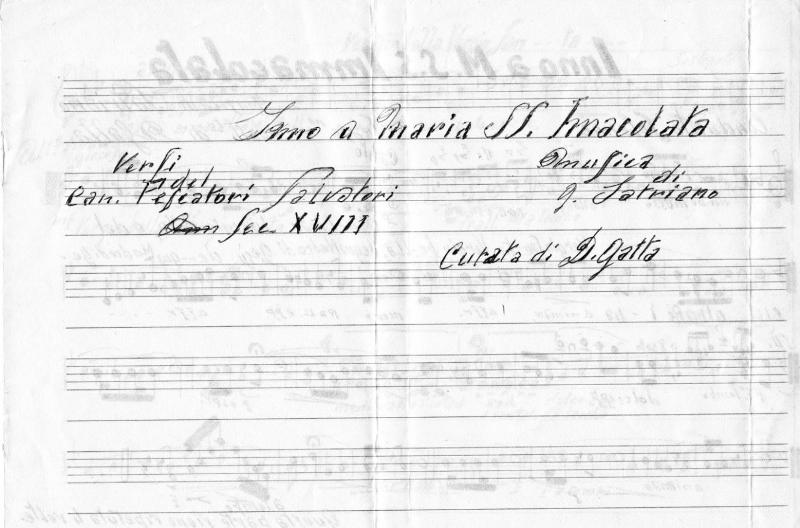 Inno a Maria SS. Imacolata
Versi
del
Can. Pescatori Salvatori
Sec. XVIII
Musica
di
G. Satriano
Curata di D. Gatta